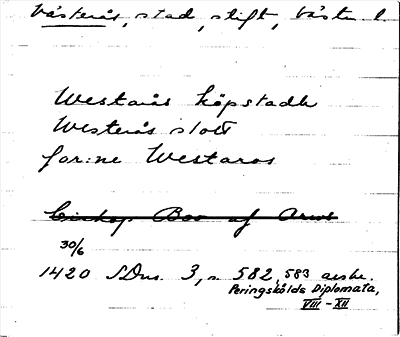 Västerås, stad, stift, Västm l.
Westarås köpstadh
Westerås slott
for:ne Westaros
Biskop Boo af Aros
30/6
1420 SDns. 3, s. 582, 583 avskr.
Peringskölds Diplomata,
VIII - XII